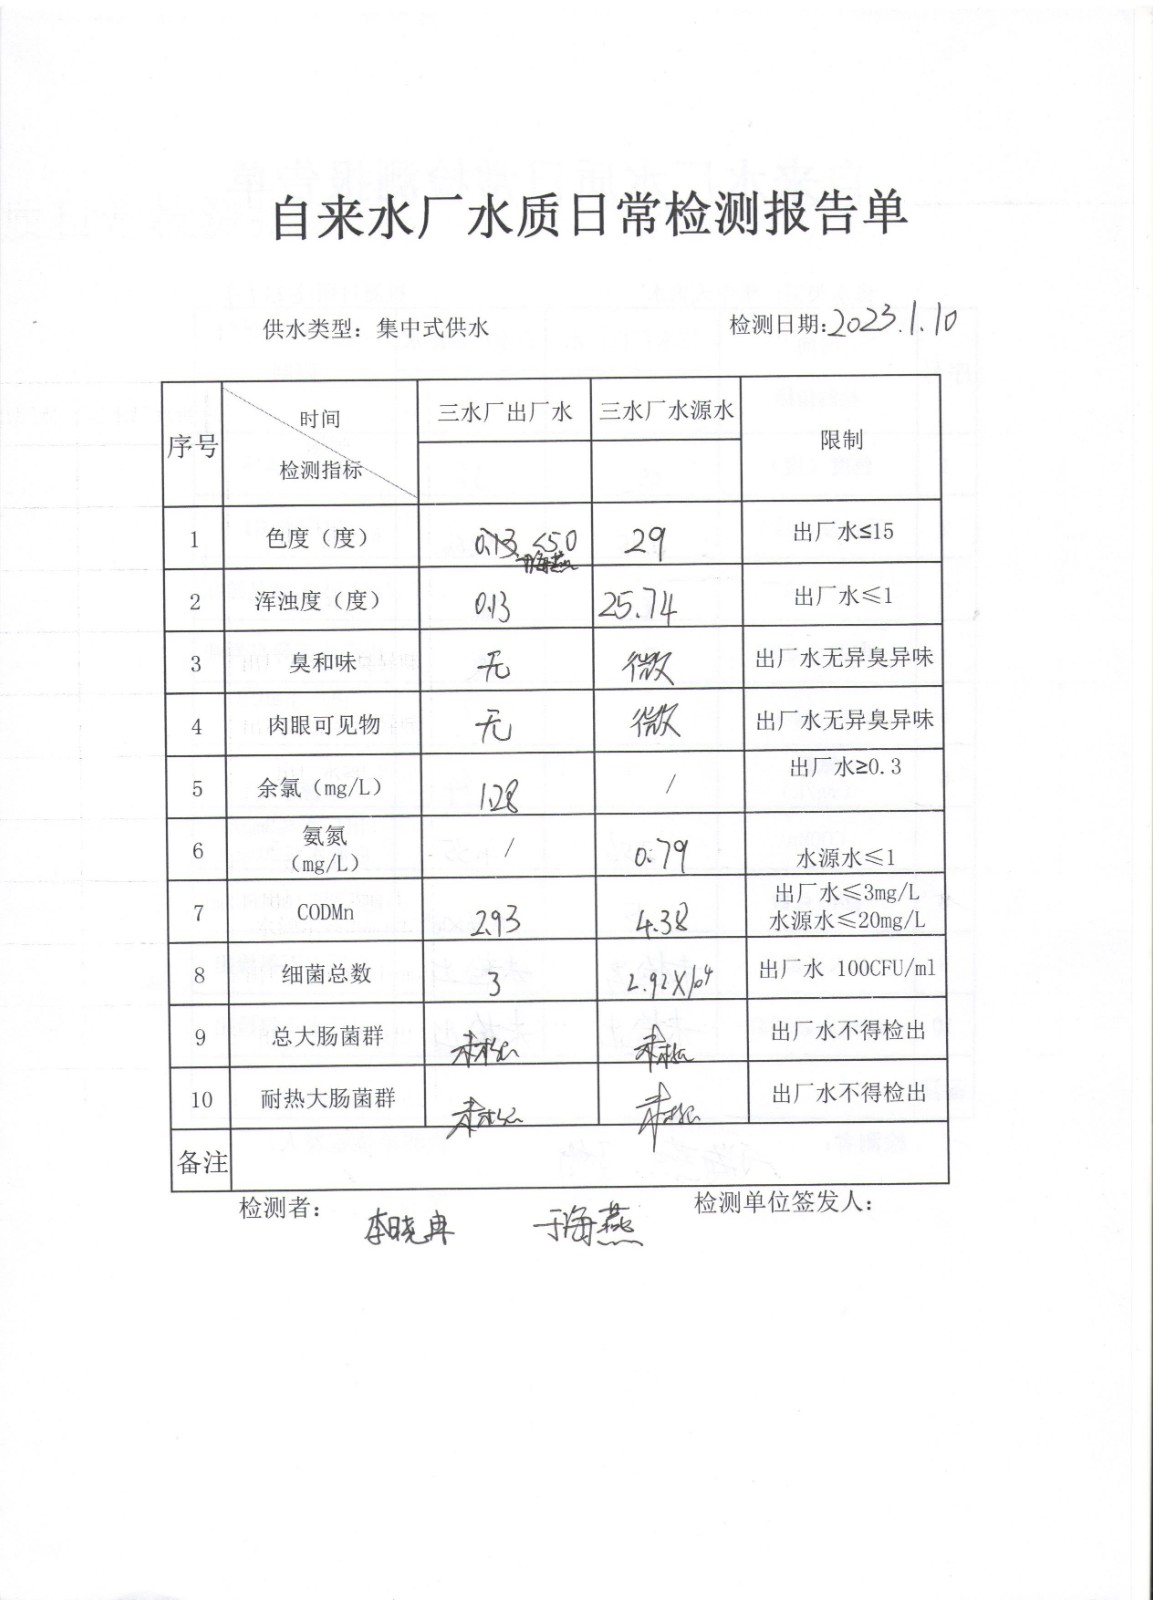 自来水厂水质日常检测报告单
供水类型：集中式供水 检测日期:2023.1.10
序号 时间 检测指标 三水厂出厂水 三水厂水源水 限制
1 色度（度） 0.13 <5.0 29 出厂水≤15
于海燕
2 浑浊度（度） 0.13 25.74 出厂水≤1
3 臭和味 无 微 出厂水无异臭异味
4 肉眼可见物 无 微 出厂水无异臭异味
5 余氯（mg/L） 1.28 / 出厂水≥0.3
6 氨氮（mg/L） / 0.79 水源水≤1
7 CODMn 2.93 4.38 出厂水≤3mg/L
水源水≤20mg/L
8 细菌总数 3 2.92×10⁴ 出厂水 100CFU/ml
9 总大肠菌群 未检出 未检出 出厂水不得检出
10 耐热大肠菌群 未检出 未检出 出厂水不得检出
备注
检测者： 李晓冉 于海燕 检测单位签发人：